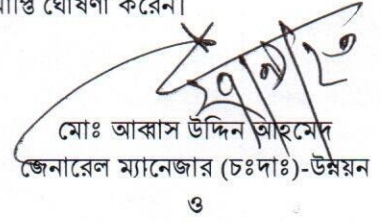 ঘোষণা করেন।
মোঃ আব্বাস উদ্দিন আহমেদ
জেনারেল ম্যানেজার (চঃদাঃ)-উন্নয়ন
ও